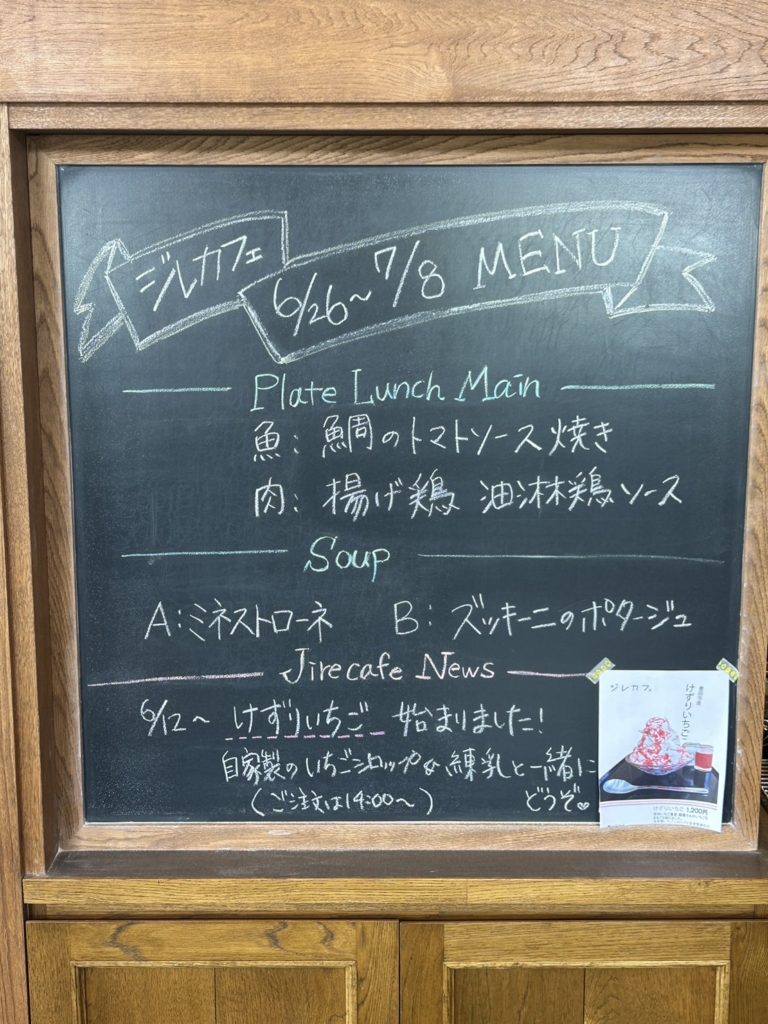 ジレカフェ 6/26~7/8 MENU
Plate Lunch Main
魚: 鯛のトマトソース焼き
肉: 揚げ鶏 油淋鶏ソース
Soup
A:ミネストローネ B: ズッキーニのポタージュ
Jirecafe News
6/12~ けずりいちご 始まりました!
自家製のいちごシロップを練乳と一緒に
どうぞ♡
(ご注文は14:00~)
ジレカフェ
けずりいちご
けずりいちご 1,200円